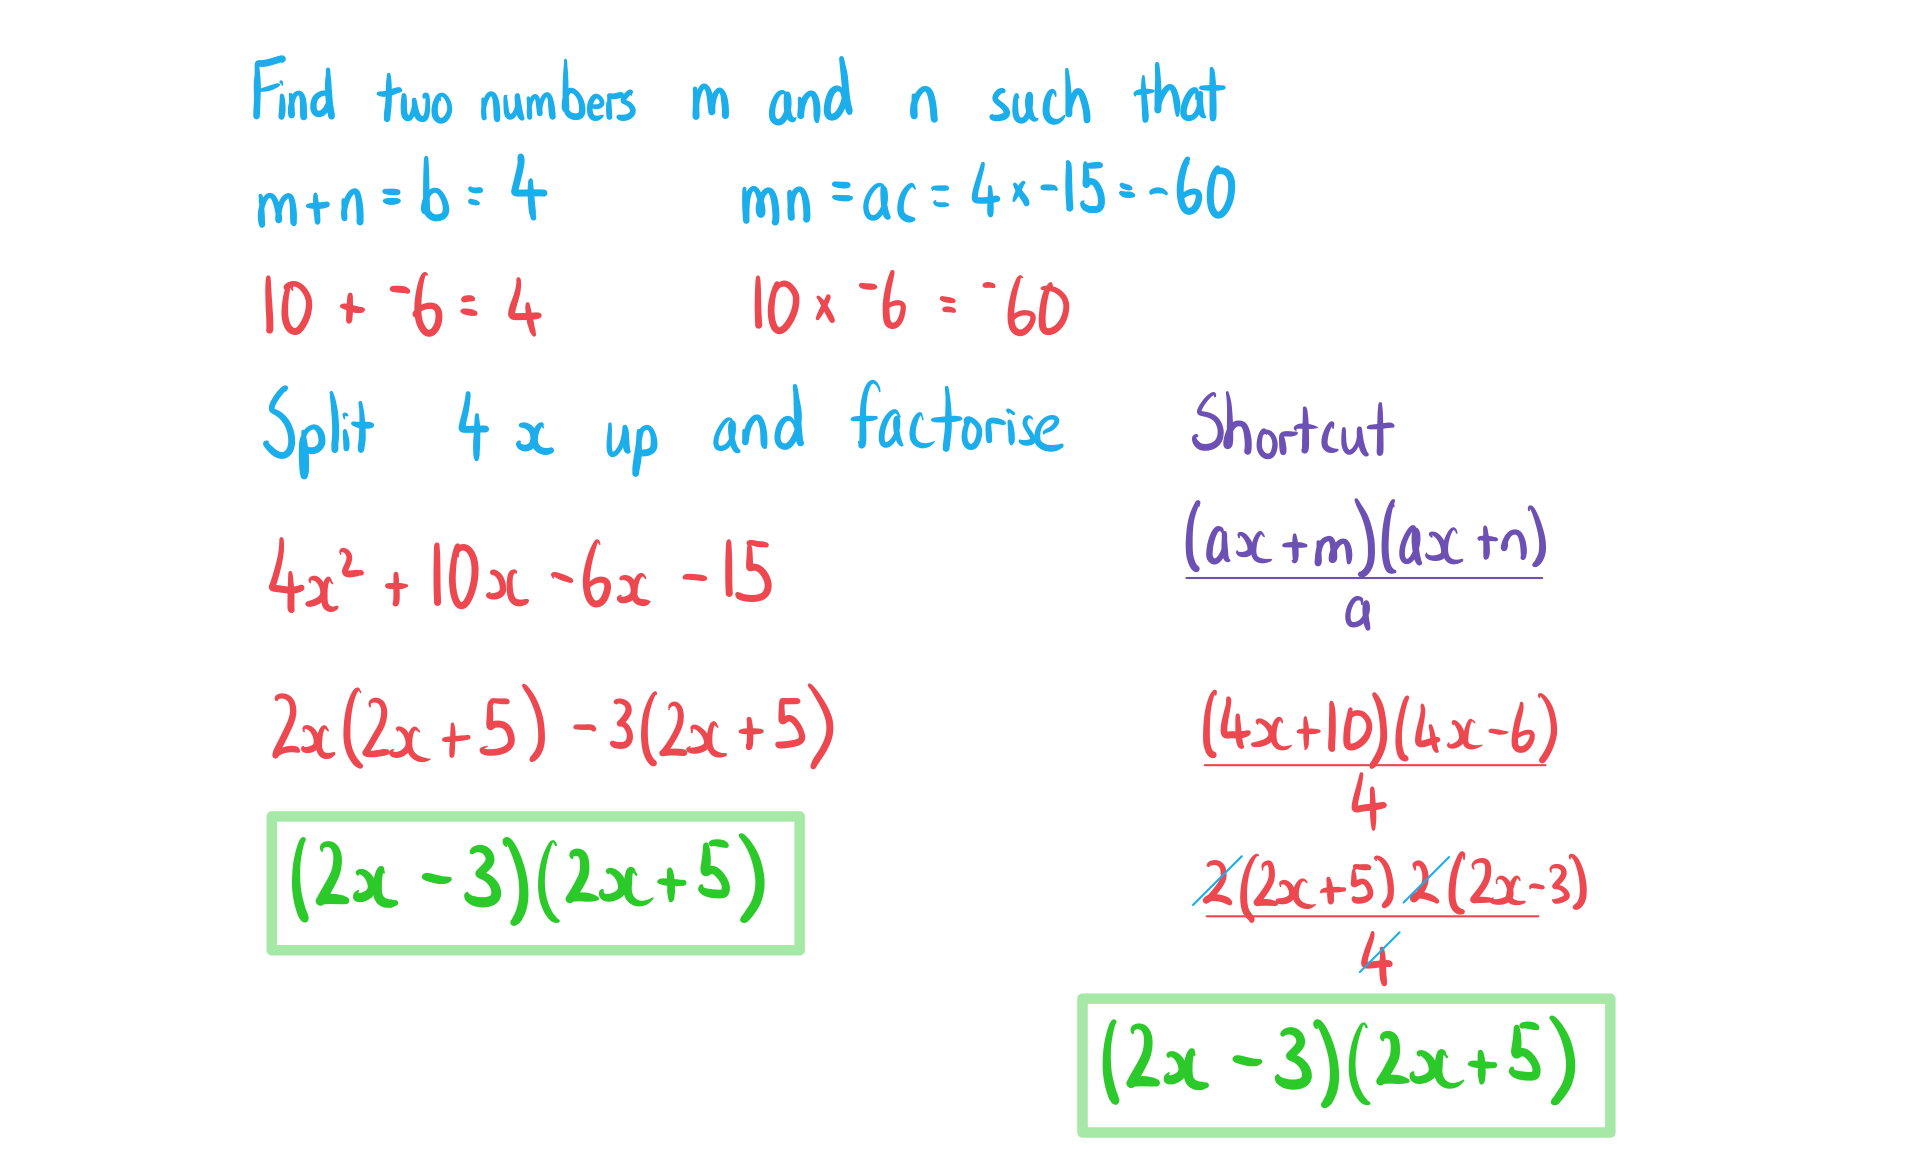 Find two numbers m and n such that
m+n = b = 4
mn = ac = 4 × -15 = -60
10 + -6 = 4
10 × -6 = -60
Split 4x up and factorise
4x² + 10x - 6x - 15
2x(2x + 5) - 3(2x + 5)
(2x - 3)(2x + 5)
Shortcut
(ax + m)(ax + n)
a
(4x + 10)(4x - 6)
4
2(2x + 5) 2(2x - 3)
4
(2x - 3)(2x + 5)